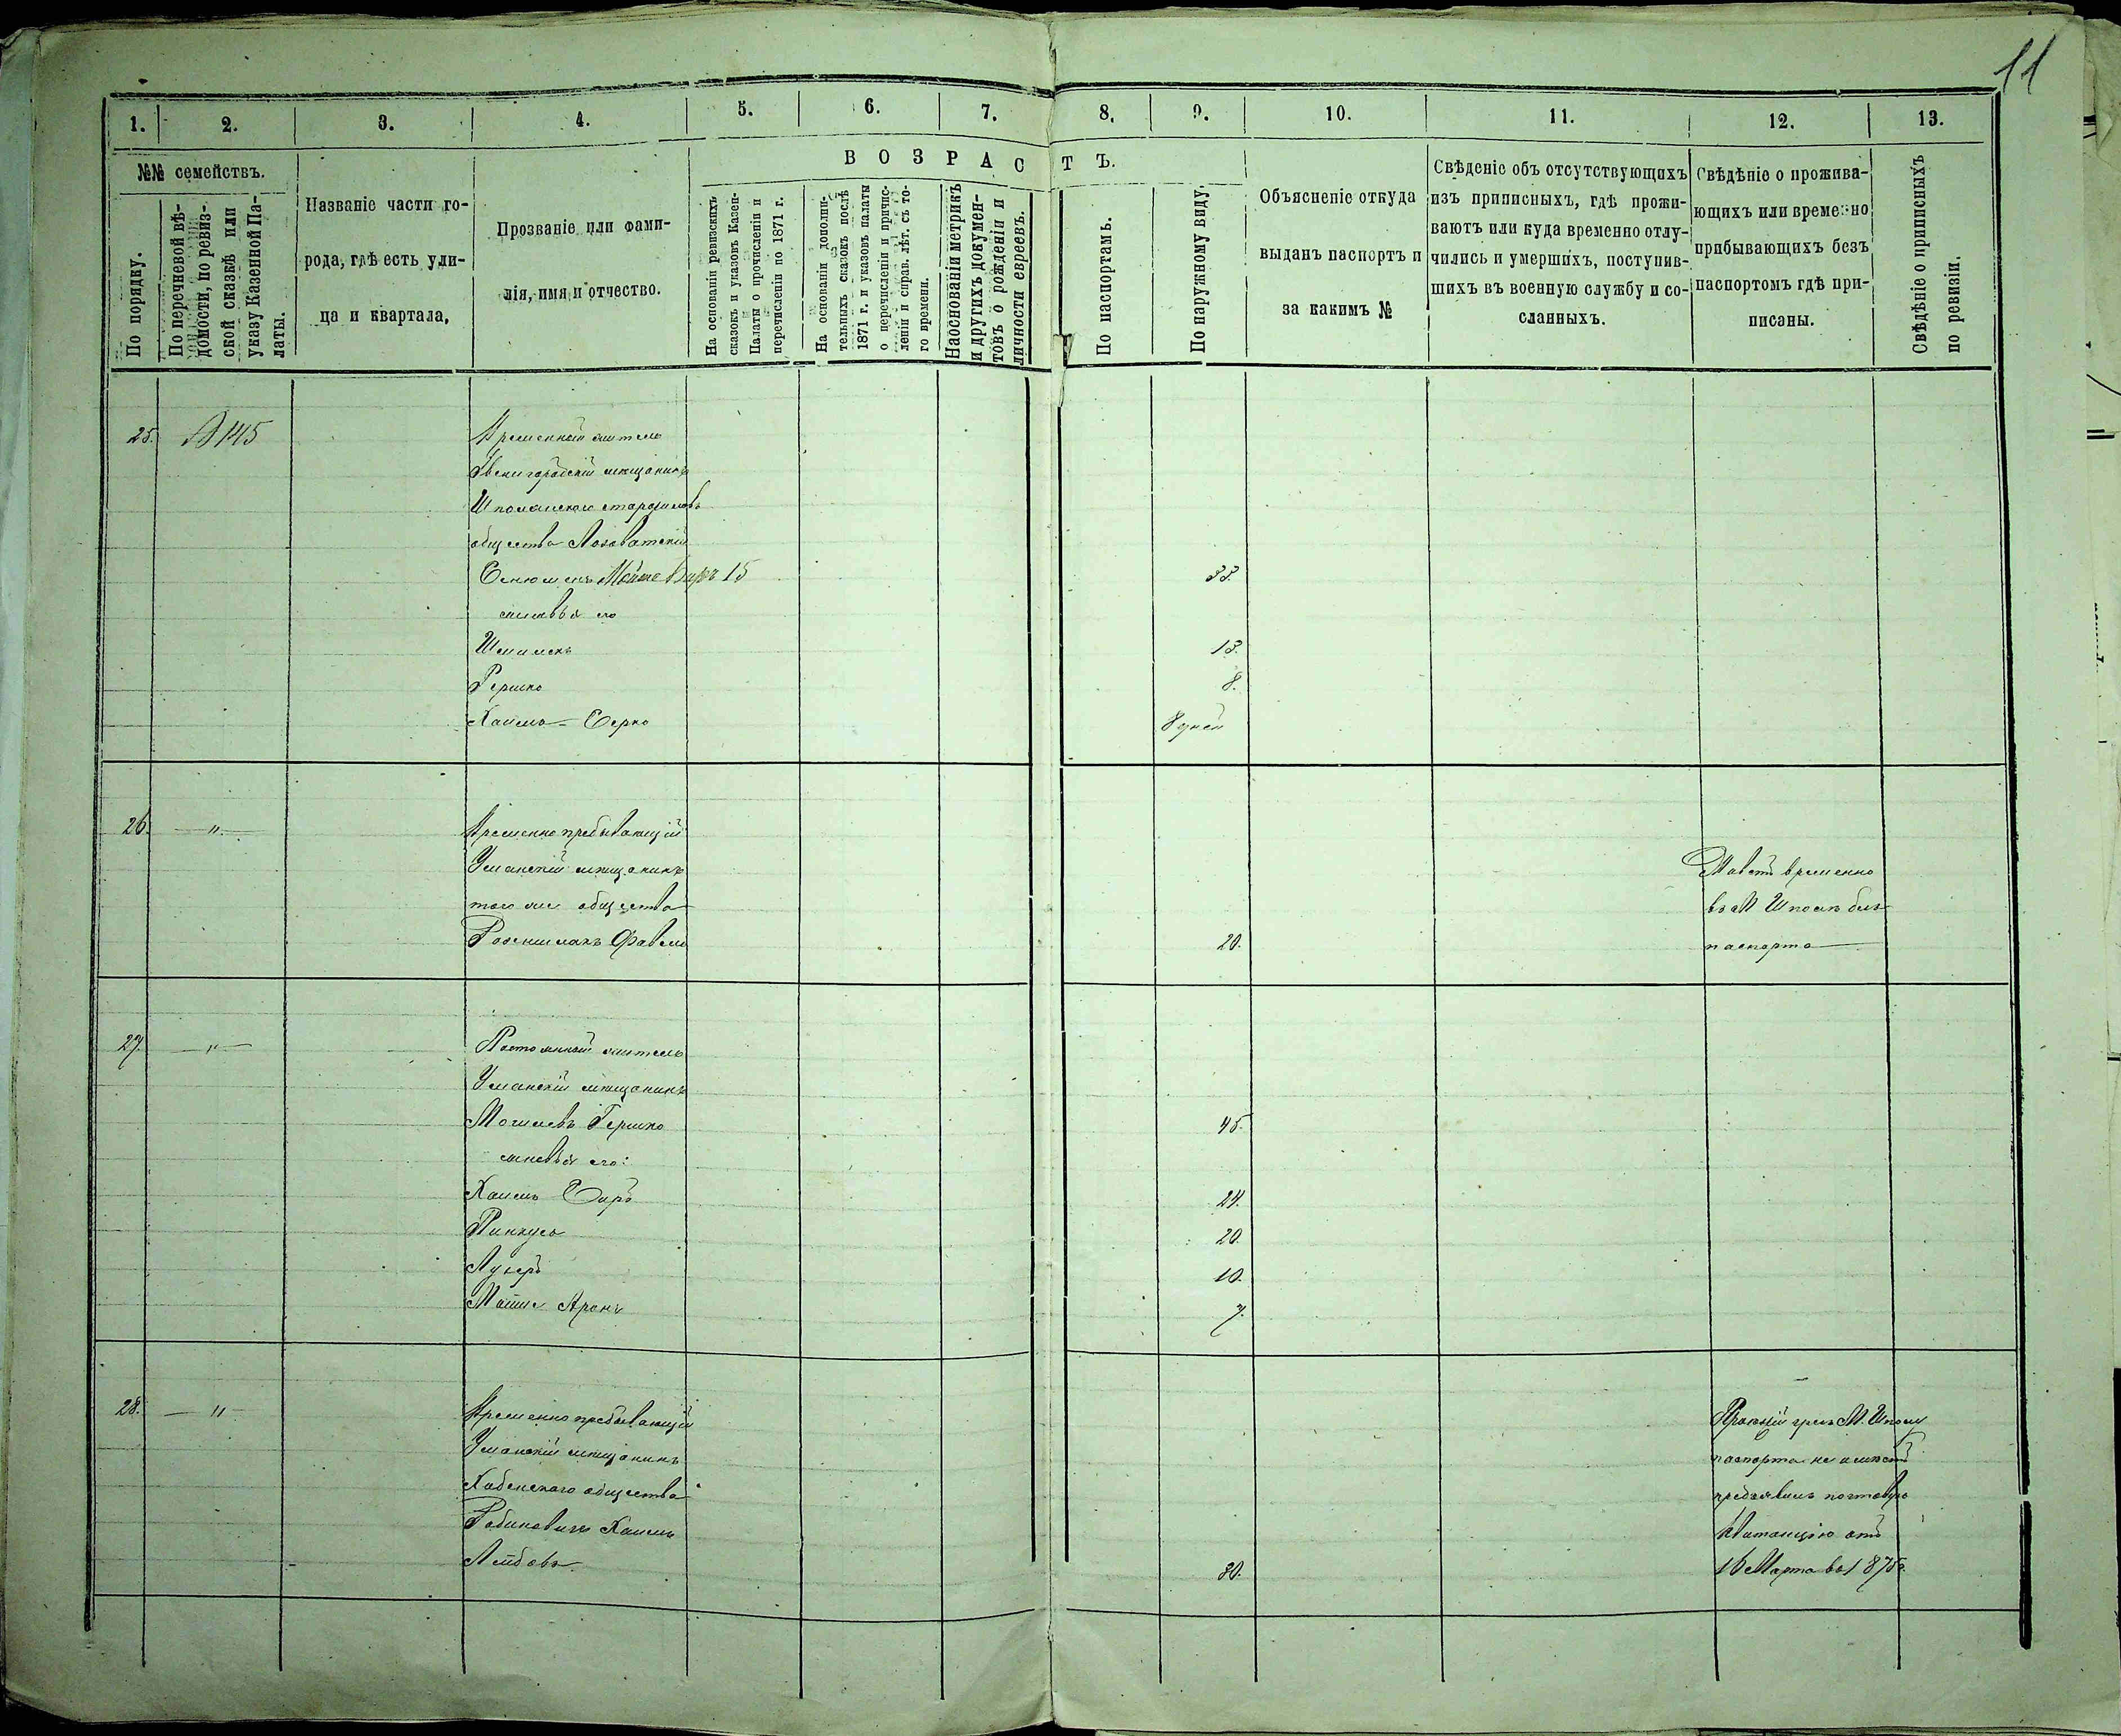 11
1. 2. 3. 4. 5. 6. 7. 8. 9. 10. 11. 12. 13.
№№ семействъ.
По порядку.
По перечневой вѣ-
домости, по ревиз-
ской сказкѣ или
указу Казенной Па-
латы.
Названіе части го-
рода, гдѣ есть ули-
ца и квартала,
Прозваніе или фами-
лія, имя и отчество.
ВОЗРАСТЪ.
На основаніи ревизскихъ
сказокъ и указовъ Казен-
Палаты о причисленіи и
перечисленіи по 1871 г.
На основаніи дополни-
тельныхъ сказокъ послѣ
1871 г. и указовъ палаты
о перечисленіи и причис-
леніи и справ. лѣт. съ то-
го времени.
Наоснованіи метрикъ
и другихъ докумен-
товъ о рожденіи и
личности евреевъ.
По паспортамъ.
По наружному виду.
Объясненіе откуда
выданъ паспортъ и
за какимъ №
Свѣденіе объ отсутствующихъ
изъ приписныхъ, гдѣ прожи-
ваютъ или куда временно отлу-
чились и умершихъ, поступив-
шихъ въ военную службу и со-
сланныхъ.
Свѣдѣніе о прожива-
ющихъ или временно
прибывающихъ безъ
паспортомъ гдѣ при-
писаны.
Свѣдѣніе о приписныхъ
по ревизіи.
25. 145 Временный житель
Звенигородскій мѣщанинъ
Шполянского
общества
Мойше 15 33.
сыновья его
Шмилекъ 13.
Гершко 8.
Хаимъ-Берко 8 дней
26. " Временно пребывающій
Уманскій мѣщанинъ
того же общества
Файвель 20.
временно
въ М Шполѣ безъ
паспорта
27. " Постоянный житель
Уманскій мѣщанинъ
Гершко 45.
сыновья его:
Хаимъ 24.
Пинкусъ 20.
Лузеръ 10.
Мойше Аронъ 7.
28. " Временно пребывающій
Уманскій мѣщанинъ
общества
Рабиновичъ Хаимъ
Лейбовъ 30.
М. Шполу
паспорта не имѣетъ
предъявилъ почтовую
квитанцію отъ
16 Марта 1875